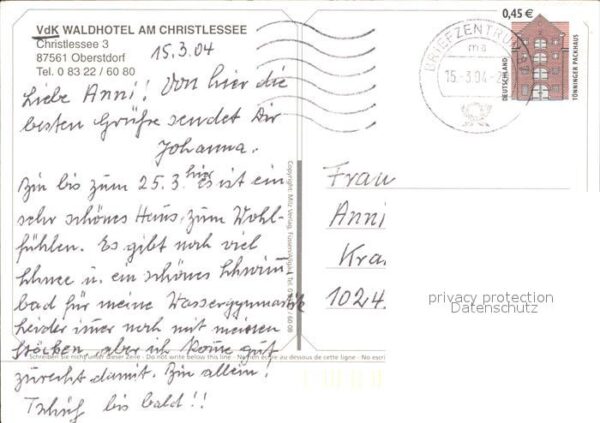 VdK WALDHOTEL AM CHRISTLESSEE
Christlessee 3
87561 Oberstdorf
Tel. 0 83 22 / 60 80
15.3.04
Liebe Anni! Von hier die
besten Grüße sendet Dir
Johanna.
Bin bis zum 25.3. hier es ist ein
sehr schönes Haus, zum Wohl-
fühlen. Es gibt noch viel
Schnee u. ein schönes Schwimm
bad für meine Wassergymnastik
Leider imer noch mit meinen
Stöcken, aber ich kome gut
zurecht damit. Bin allein!
Tschüß bis bald!!
Schreiben Sie nicht unter dieser Zeile - Do not write below this line - Ne rien écrire au dessous de cette ligne - No escri
Copyright: Milz Verlag, Füssen/Allgäu, Tel.
/ 60 08
BRIEFZENTRUM
ma
15.-3.04-2
0,45 €
DEUTSCHLAND
TÖNNINGER PACKHAUS
Frau
Anni
Kra
1024
privacy protection
Datenschutz